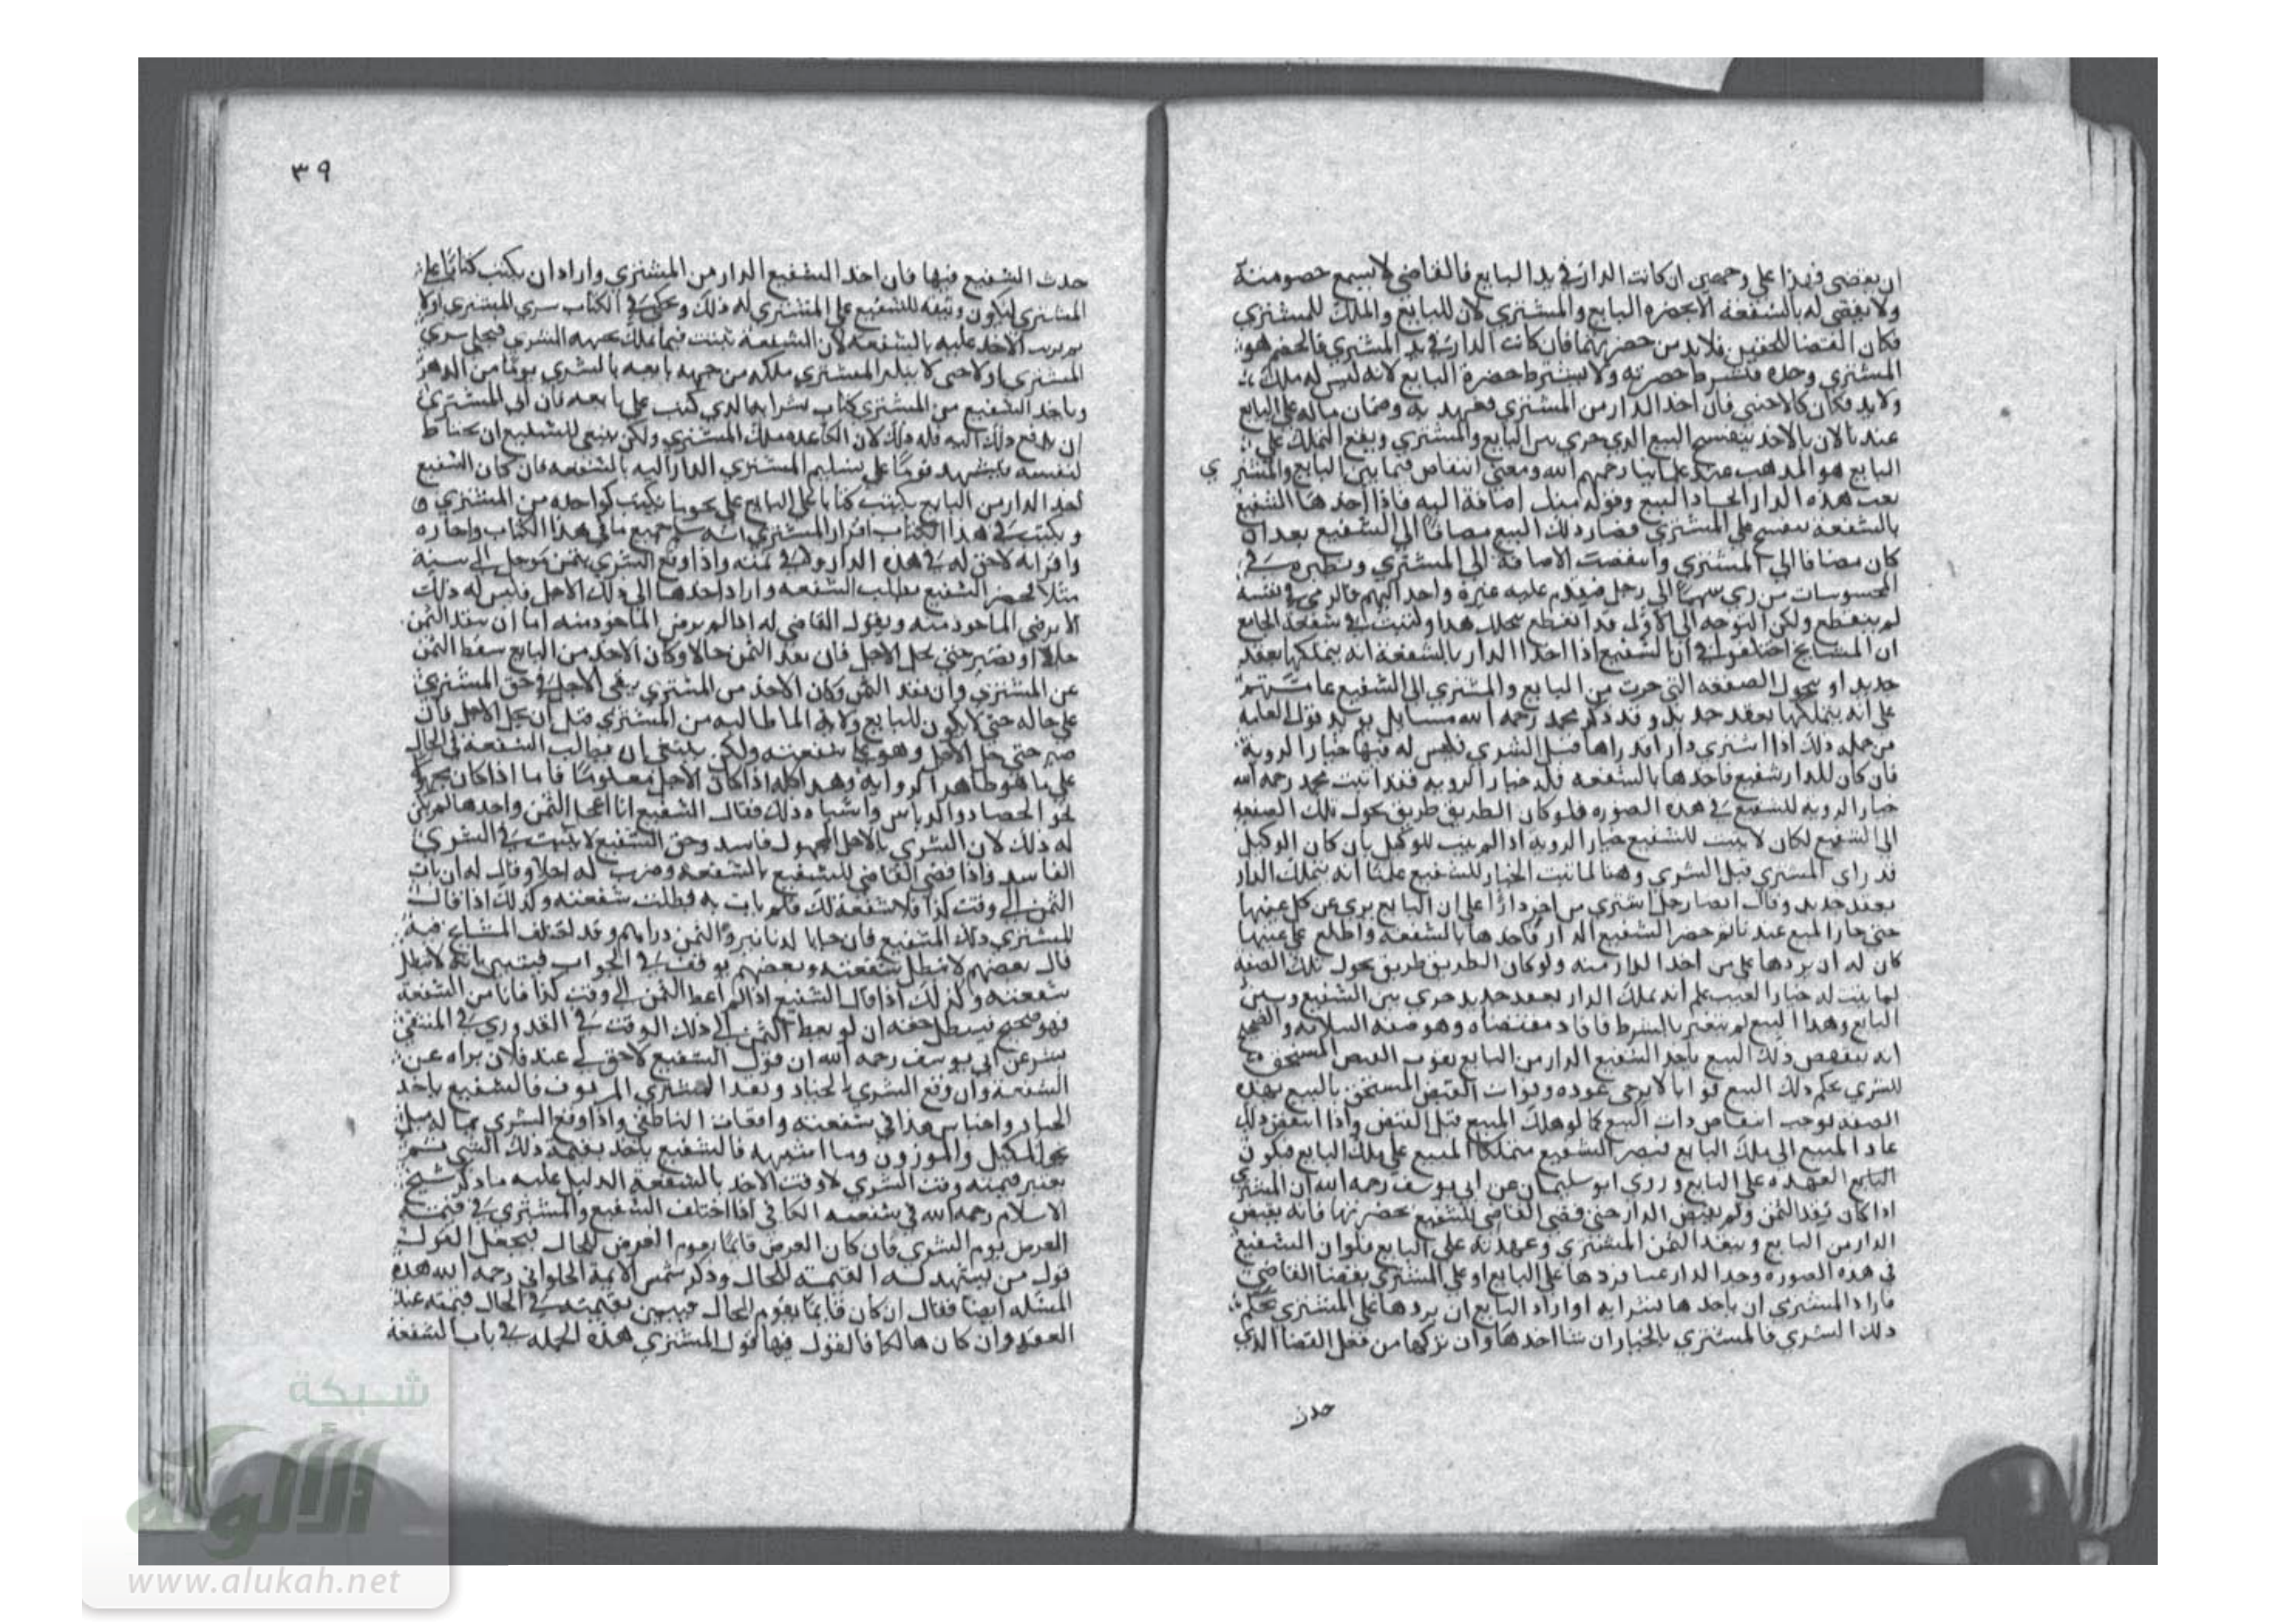 ان يقضى فهذا على وجهين ان كانت الدار في يد البايع فالقاضي لا يسمع خصومته
ولا يقضى له بالشفعة الا بحضرة البايع والمشتري لان للبايع والملك للمشتري
فكان القضا للحقين فلابد من حضرتهما فان كانت الدار في يد المشتري فالخصم هو
المشتري وحده فتشترط حضرته ولا يشترط حضرة البايع لانه ليس له ملك
ولا يد فكان كالاجنبي فان اخذ الدار من المشتري فعهدته وضمان ماله على البايع
عندنا لان بالاخذ ينفسخ البيع الذي جرى بين البايع والمشتري ويقع التملك على
البايع هو المذهب عند علمائنا رحمهم الله ومعنى انتقاض فيما بين البايع والمشتر
ي
بعت هذه الدار ايجاد البيع وقوله منك اضافة اليه فاذا اخذها الشفيع
بالشفعة ينفسخ على المشتري فصار ذلك البيع مضافا الى الشفيع بعد ان
كان مضافا الى المشتري وانتقضت الاضافة الى المشتري ونظيره في
المحسوسات من رمى سهما الى رجل فتقدم عليه غيره واحد اليهم فالرمي في نفسه
لم ينقطع ولكن التوجه الى الاول قد انقطع بتخلل هذا وكتبت في شفعة الجامع
ان المشايخ اختلفوا في ان الشفيع اذا اخذ الدار بالشفعة انه يتملكها بعقد
جديد او بتحول الصفقة التي جرت من البايع والمشتري الى الشفيع عامتهم
على انه يتملكها بعقد جديد وقد ذكر محمد رحمه الله مسايل يويد قول العامة
من جملة ذلك اذا اشترى دارا قد راها قبل الشرى فليس له فيها خيار الروية
فان كان للدار شفيع فاخذها بالشفعة فله خيار الروية فقد اثبت محمد رحمه الله
خيار الروية للشفيع في هذه الصورة فلو كان الطريق طريق تحول تلك الصفقة
الى الشفيع لكان لا يثبت للشفيع خيار الروية اذا لم يثبت للوكيل بان كان الوكيل
قد راى المشترى قبل الشرى وهنا لما ثبت الخيار للشفيع علمنا انه يتملك الدار
بعقد جديد وقال ايضا رجل اشترى من اخر دارا على ان البايع برى عن كل عيبها
حتى جاز البيع عندنا ثم حضر الشفيع الدار فاخذها بالشفعة واطلع على عيبها
كان له ان يردها على من اخذ الدار منه ولو كان الطريق طريق تحول تلك الصفقة
لما يثبت له خيار العيب علم انه تملك الدار بعقد جديد جرى بين الشفيع وبين
البايع وهذا البيع لم يتغير بالشرط فافاد مقتضاه وهو صفة السلامة
انه ينتقض ذلك البيع باخذ الشفيع الدار من البايع يفوت القبض المستحق
للمشتري بحكم ذلك البيع فواتا لا يرجى عوده وفوات القبض المستحق بالبيع بهذه
الصفة يوجب انتقاض ذات البيع كما لو هلك المبيع قبل القبض واذا انتقض ذلك
عاد المبيع الى ملك البايع فيصر الشفيع متملكا المبيع على ملك البايع فكون
البايع العهده على البايع وروى ابو سليمان عن ابي يوسف رحمه الله ان المشتري
اذا كان نقد الثمن ولم يقبض الدار حتى قضى القاضي للشفيع بحضرتها فانه يقبض
الدار من البايع وينقد الثمن المشتري وعهدته على البايع فلو ان الشفيع
في هذه الصورة وجد بالدار عيبا فردها على البايع او على المشتري بقضا القاضي
فاراد المشتري ان ياخذها بشرايه او اراد البايع ان يردها على المشتري بحكم
ذلك الشري فالمشتري بالخيار ان شا اخذها وان تركها من فعل القضا الذي
حدث
٣٩
حدث الشفيع فيها فان اخذ الشفيع الدار من المشتري واراد ان يكتب كتابا على
المشتري ليكون وثيقة للشفيع على المشتري له ذلك ويحكى في الكتاب شرى المشتري اولا
ثم يرتب الاخذ عليه بالشفعة لان الشفعة تثبت فيما تملك بجهة الشرى فيحكى شرى
المشتري اولا حتى لا ينكر المشتري ملكه من جهة بايعه بالشرى يوما من الدهر
وياخذ الشفيع من المشتري كتاب شرايه الذي كتب على بايعه فان ابى المشتري
ان يدفع ذلك اليه فله ذلك لان الكاغد ملك المشتري ولكن ينبغي للشفيع ان يحتاط
لنفسه فيشهد قوما على تسليم المشتري الدار اليه بالشفعة فان كان الشفيع
اخذ الدار من البايع يكتب كتابا على البايع على نحو ما يكتب لو اخذه من المشتري و
ويكتب في هذا الكتاب اقرار المشتري انه سلم جميع ما في هذا الكتاب واجازه
واقر انه لا حق له في هذه الدار ولا في ثمنه واذا وقع الشري بثمن موجل الى سنة
مثلا فحضر الشفيع يطلب الشفعة واراد اخذها الى ذلك الاجل فليس له ذلك
الا برضى الماخوذ منه ويقول القاضي له اذا لم يرض الماخوذ منه اما ان تنقد الثمن
حالا او تصبر حتى يحل الاجل فان نقد الثمن حالا وكان الاخذ من البايع سقط الثمن
عن المشتري وان نقد الثمن وكان الاخذ من المشتري يبقى الاجل في حق المشتري
على حاله حتى لا يكون للبايع ولاية المطالبة من المشتري قبل ان يحل الاجل فان
صبر حتى حل الاجل وهو على شفعته ولكن ينبغي ان يطالب الشفعة في الحال
على ما هو ظاهر الرواية وهذا كله اذا كان الاجل معلوما فاما اذا كان مجهولا
نحو الحصاد والدياس واشباه ذلك فقال الشفيع انا اعجل الثمن واخذها لم يكن
له ذلك لان الشري بالاجل المجهول فاسد وحق الشفيع لا يثبت في الشري
الفاسد واذا قضى القاضي للشفيع بالشفعة وضرب له اجلا وقال له ان يات
الثمن الى وقت كذا فلا شفعة لك فلم يات به فبطلت شفعته وكذلك اذا قال
للمشتري ذلك الشفيع فان جايا لدنانير والثمن دراهم وقد اختلف المشايخ فيه
قال بعضهم لا تبطل شفعته وبعضهم توقف في الجواب فيتبين بانه لا تبطل
شفعته وكذلك اذا قال الشفيع اذا لم اعط الثمن الى وقت كذا فانا من الشفعة
فهو صحيح فيبطل حقه ان لو يعط الثمن الى ذلك الوقت في القدوري في المنتقى
بشر عن ابي يوسف رحمه الله ان قول الشفيع لا حق لي عند فلان براه عن
الشفعة وان وقع الشري بالجياد ونقد المشتري الزيوف فالشفيع ياخذ
الجياد في شفعته واقعات الناطفي واذا وقع الشري بما له مثل
نحو المكيل والموزون وما اشبهه فالشفيع ياخذ بقيمة ذلك الشي ثم
يعتبر قيمته وقت الشري لا وقت الاخذ بالشفعة الدليل عليه ما ذكر شيخ
الاسلام رحمه الله في شفعته الكافي اذا اختلف الشفيع والمشتري في قيمة
العرض يوم الشري فان كان العرض قايما يقوم العرض للحال فيجعل القول
قول من يشهد له القيمة للحال وذكر شمس الايمة الحلواني رحمه الله هذه
المسئلة ايضا فقال ان كان قايما يقوم للحال فيتبين بقيمته في الحال قيمته عند
العقد وان كان هالكا فالقول فيها قول المشتري هذه الجملة في باب الشفعة
شبكة
الألوكة
www.alukah.net